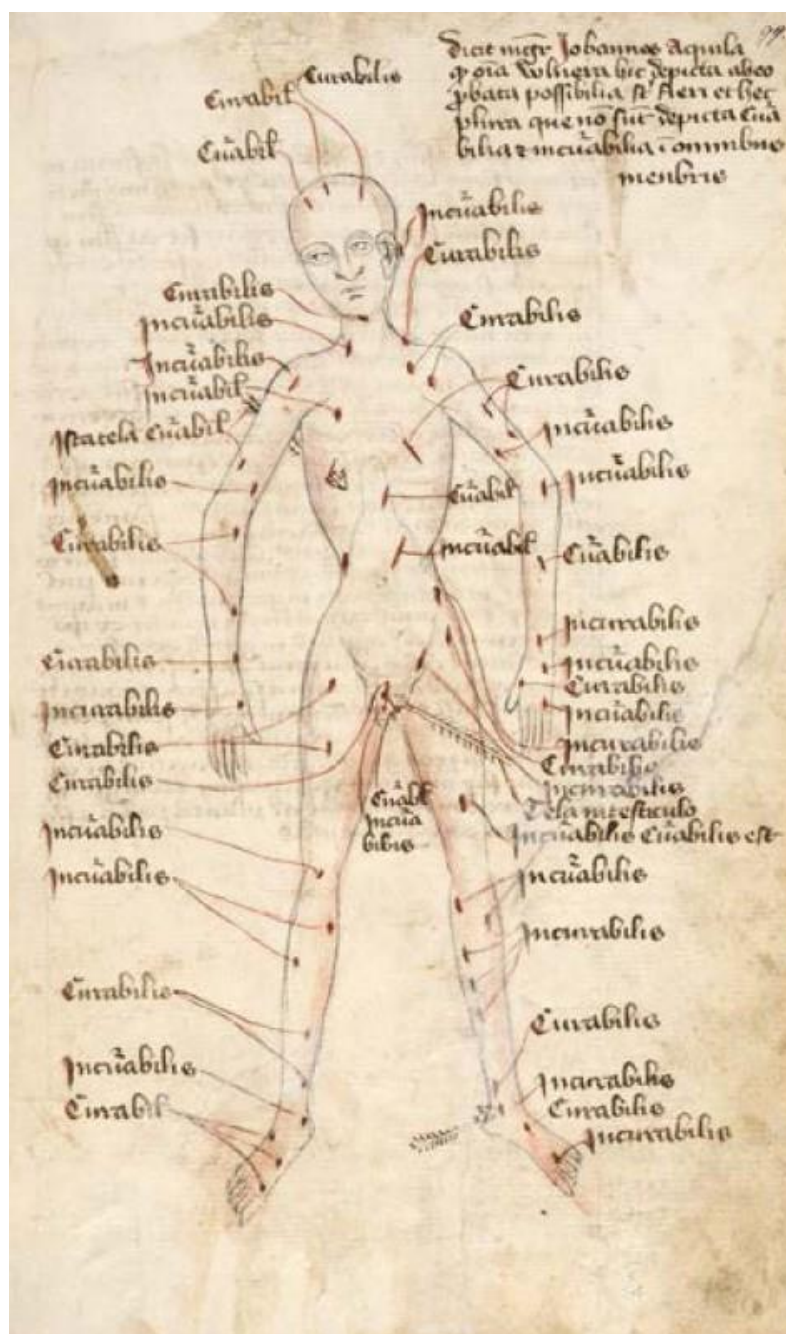 dicit mgr̄ Johannes Aquila
ꝙ oīa vulnera hic depicta ab eo
ꝓbata possibilia st̄ fieri et hec
plura que nō sūt depicta Cūa
bilia ⁊ incūabilia ī omnibus
menbris
Curabilis
Curabil
Cūabil
Incūabilis
Curabilis
Curabilis
Incūabilis
Curabilis
Incūabilis
Curabilis
Incūabil
Cūabil
Incūabilis
Incūabilis
Incūabilis
Cūabil
Curabilis
Incūabil
Cūabilis
Incurabilis
Curabilis
Incūabilis
Curabilis
Incurabilis
Incūabilis
Curabilis
Incurabilis
Curabilis
Curabilis
Incurabilis
Tela in testiculo
Cūabil
Incūa
bilis
Incūabilis
Incūabilis Cūabilis est
Incūabilis
Incūabilis
Incurabilis
Curabilis
Curabilis
Incūabilis
Incurabilis
Curabil
Curabilis
Incurabilis